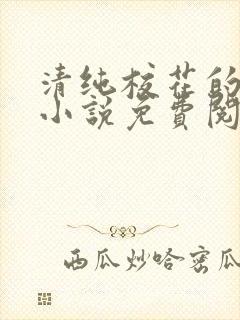 清纯校花的
小说免费阅
西瓜炒哈密瓜